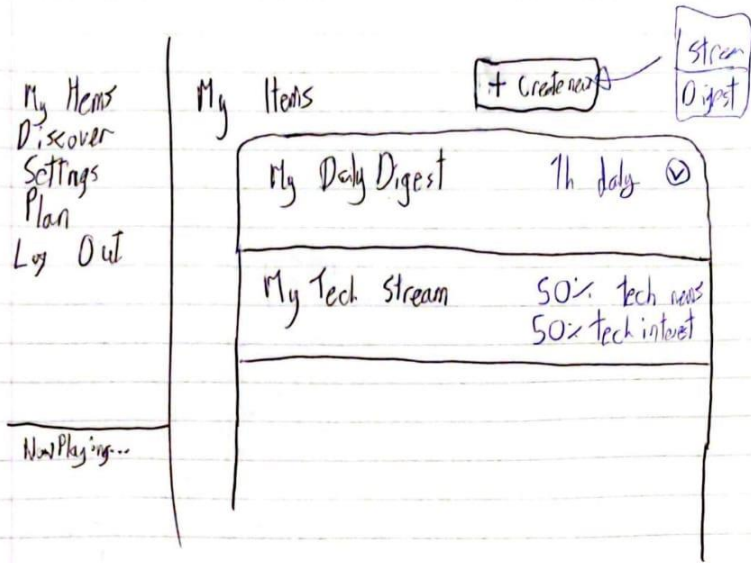 My Items
Discover
Settings
Plan
Log Out
Now Playing...
My Items
+ Create new
Stream
Digest
My Daly Digest 1h daly
My Tech Stream 50% tech news
50% tech interest